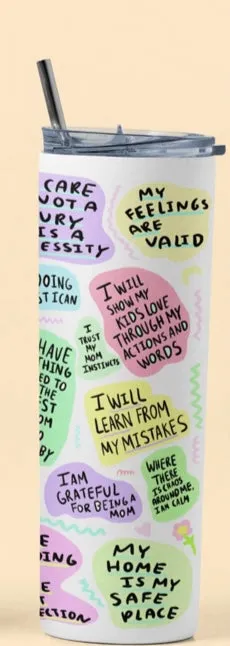 CARE
NOT A
URY
IS A
ESSITY
MY
FEELINGS
ARE
VALID
DOING
ST I CAN
I WILL
SHOW MY
KIDS LOVE
THROUGH MY
ACTIONS AND
WORDS
I
TRUST
MY
MOM
INSTINCTS
HAVE
THING
ED TO
THE
ST
OM
O
BY
I WILL
LEARN FROM
MY MISTAKES
I AM
GRATEFUL
FOR BEING A
MOM
WHERE
THERE
IS CHAOS
AROUND ME,
I AM CALM
E
DING
E
T
ECTION
MY
HOME
IS MY
SAFE
PLACE